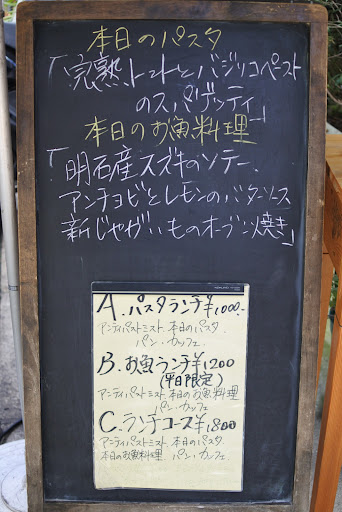 本日のパスタ
「完熟トマトとバジリコペースト
のスパゲッティ」
本日のお魚料理
「明石産スズキのソテー、
アンチョビとレモンのバターソース
新じゃがいものオーブン焼き」
A.パスタランチ¥1000-
アンティパストミスト.本日のパスタ.
パン・カッフェ.
B.お魚ランチ¥1200
(平日限定)
アンティパストミスト.本日のお魚料理
パン・カッフェ
C.ランチコース¥1800
アンティパストミスト.本日のパスタ
本日のお魚料理.パン・カッフェ.